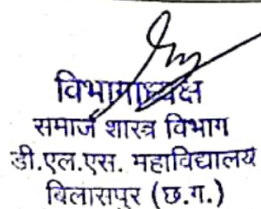 विभागाध्यक्ष
समाज शास्त्र विभाग
डी.एल.एस. महाविद्यालय
बिलासपुर (छ.ग.)